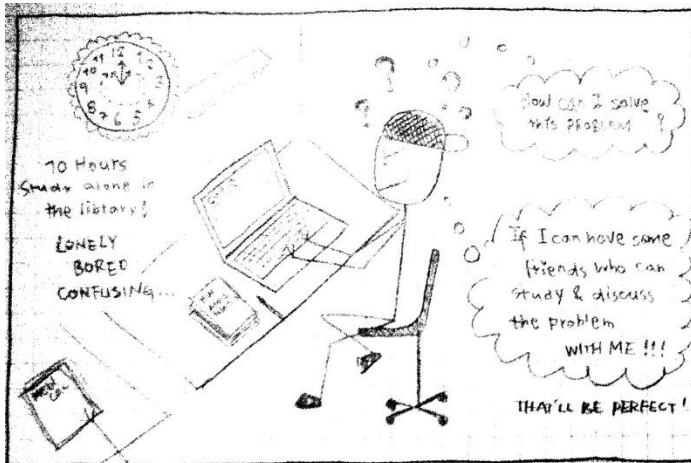 11 12 1
10 2
9 3
8 4
7 6 5
10 Hours
Study alone in
the library!
LONELY
BORED
CONFUSING...
? ? ?
How can I solve
this PROBLEM ?
If I can have some
friends who can
study & discuss
the problem
WITH ME !!!
THAT'LL BE PERFECT!